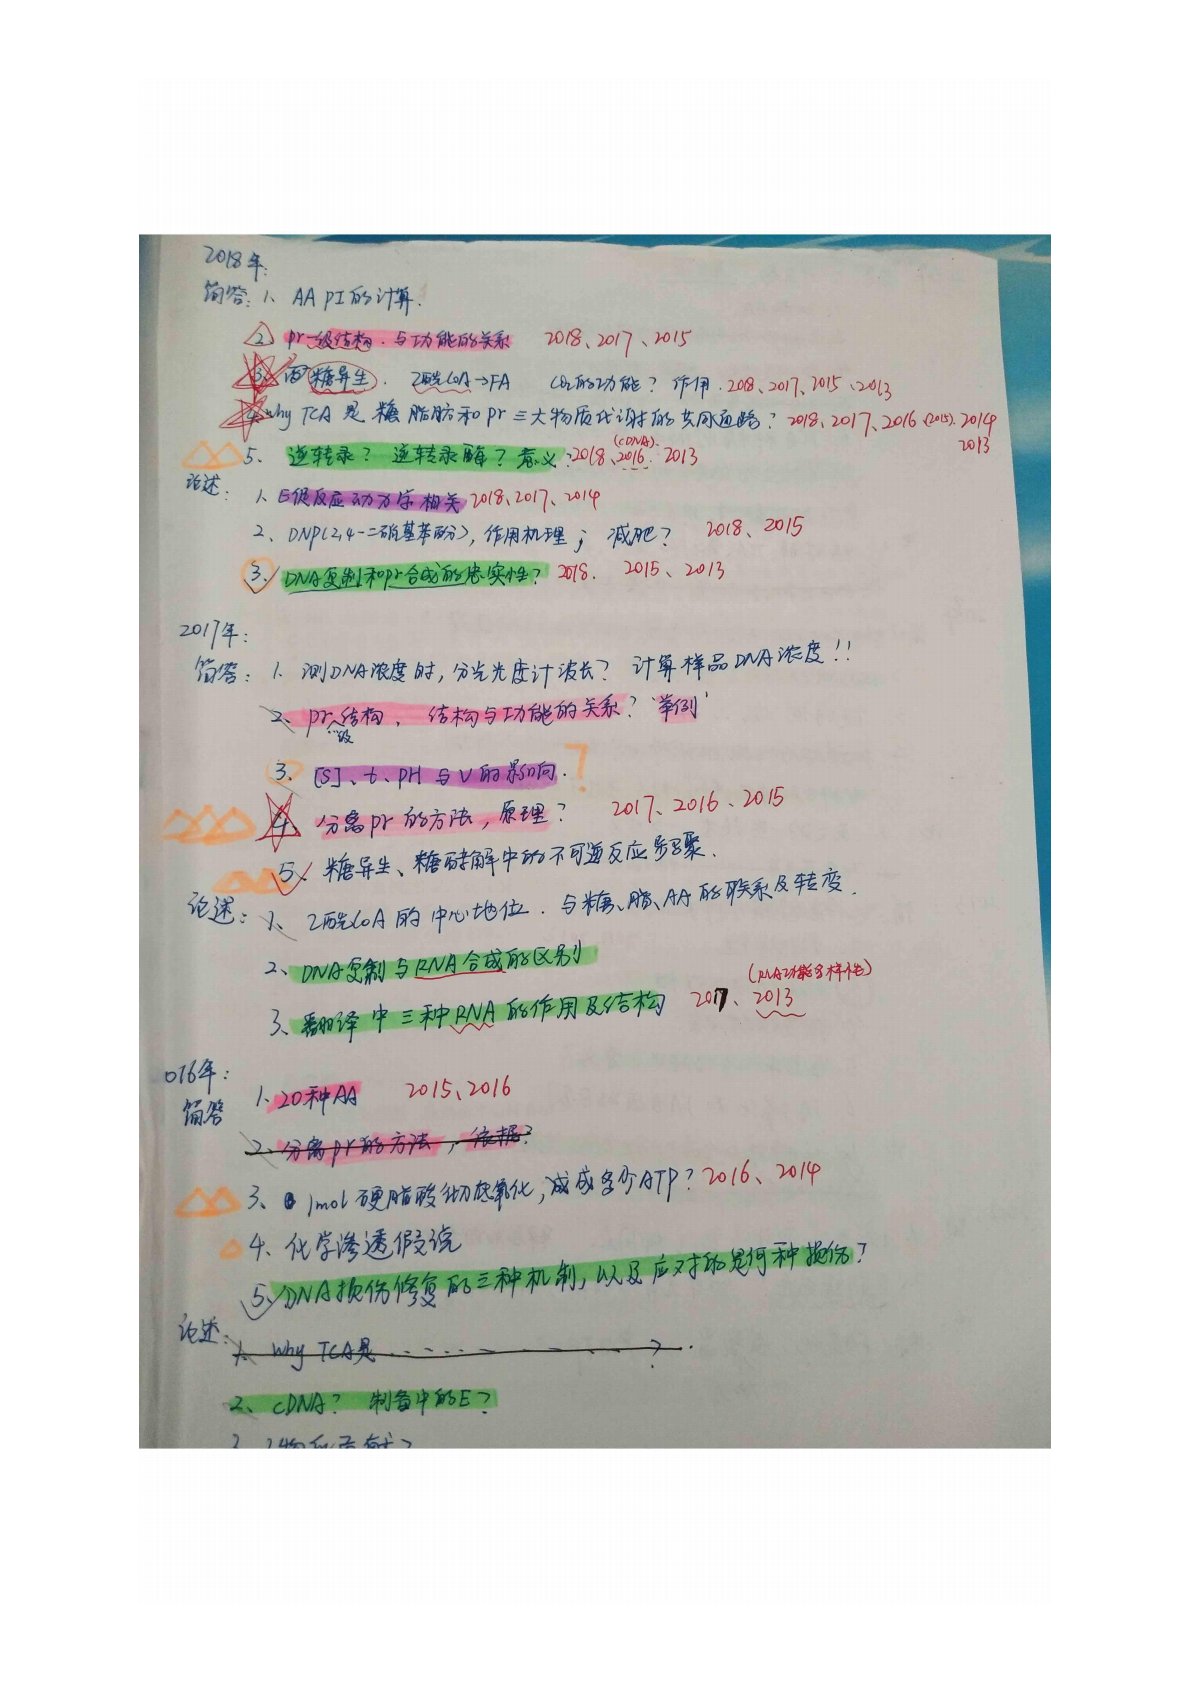 2018年:
简答: 1、AA PI的计算.
2、pr一级结构.与功能的关系 2018、2017、2015
3、 糖异生. 乙酰CoA→FA CO₂的功能? 作用. 2018、2017、2015、2013
4、why TCA 是 糖 脂肪 和 pr 三大物质代谢的共同通路? 2018、2017、2016、(2015)、2014
2013
(cDNA).
5、 逆转录? 逆转录酶? 意义? 2018、2016. 2013
论述: 1、E促反应动力学相关 2018、2017、2014
2、DNP(2,4-二硝基苯酚), 作用机理; 减肥? 2018、2015
3、DNA复制和pr合成的忠实性? 2018. 2015、2013
2017年:
简答: 1、测DNA浓度时,分光光度计波长? 计算样品DNA浓度!!
2、pr一级结构, 结构与功能的关系? '举例'
3、[S]、t、PH 与 V 的影响. ?
4、分离pr的方法, 原理? 2017、2016、2015
5、糖异生、糖酵解中的不可逆反应步骤.
论述: 1、乙酰CoA的中心地位. 与糖、脂、AA的联系及转变.
2、DNA复制与RNA合成的区别
(RNA功能多样性)
3、翻译中三种RNA的作用及结构 2017、2013
016年:
简答 1、20种AA 2015、2016
2、分离pr的方法, 依据?
3、1mol硬脂酸彻底氧化, 成多少ATP? 2016、2014
4、化学渗透假说
5、DNA损伤修复的三种机制, 以及应对的是何种损伤?
论述: 1、Why TCA是..........?..
2、cDNA? 制备中的E?